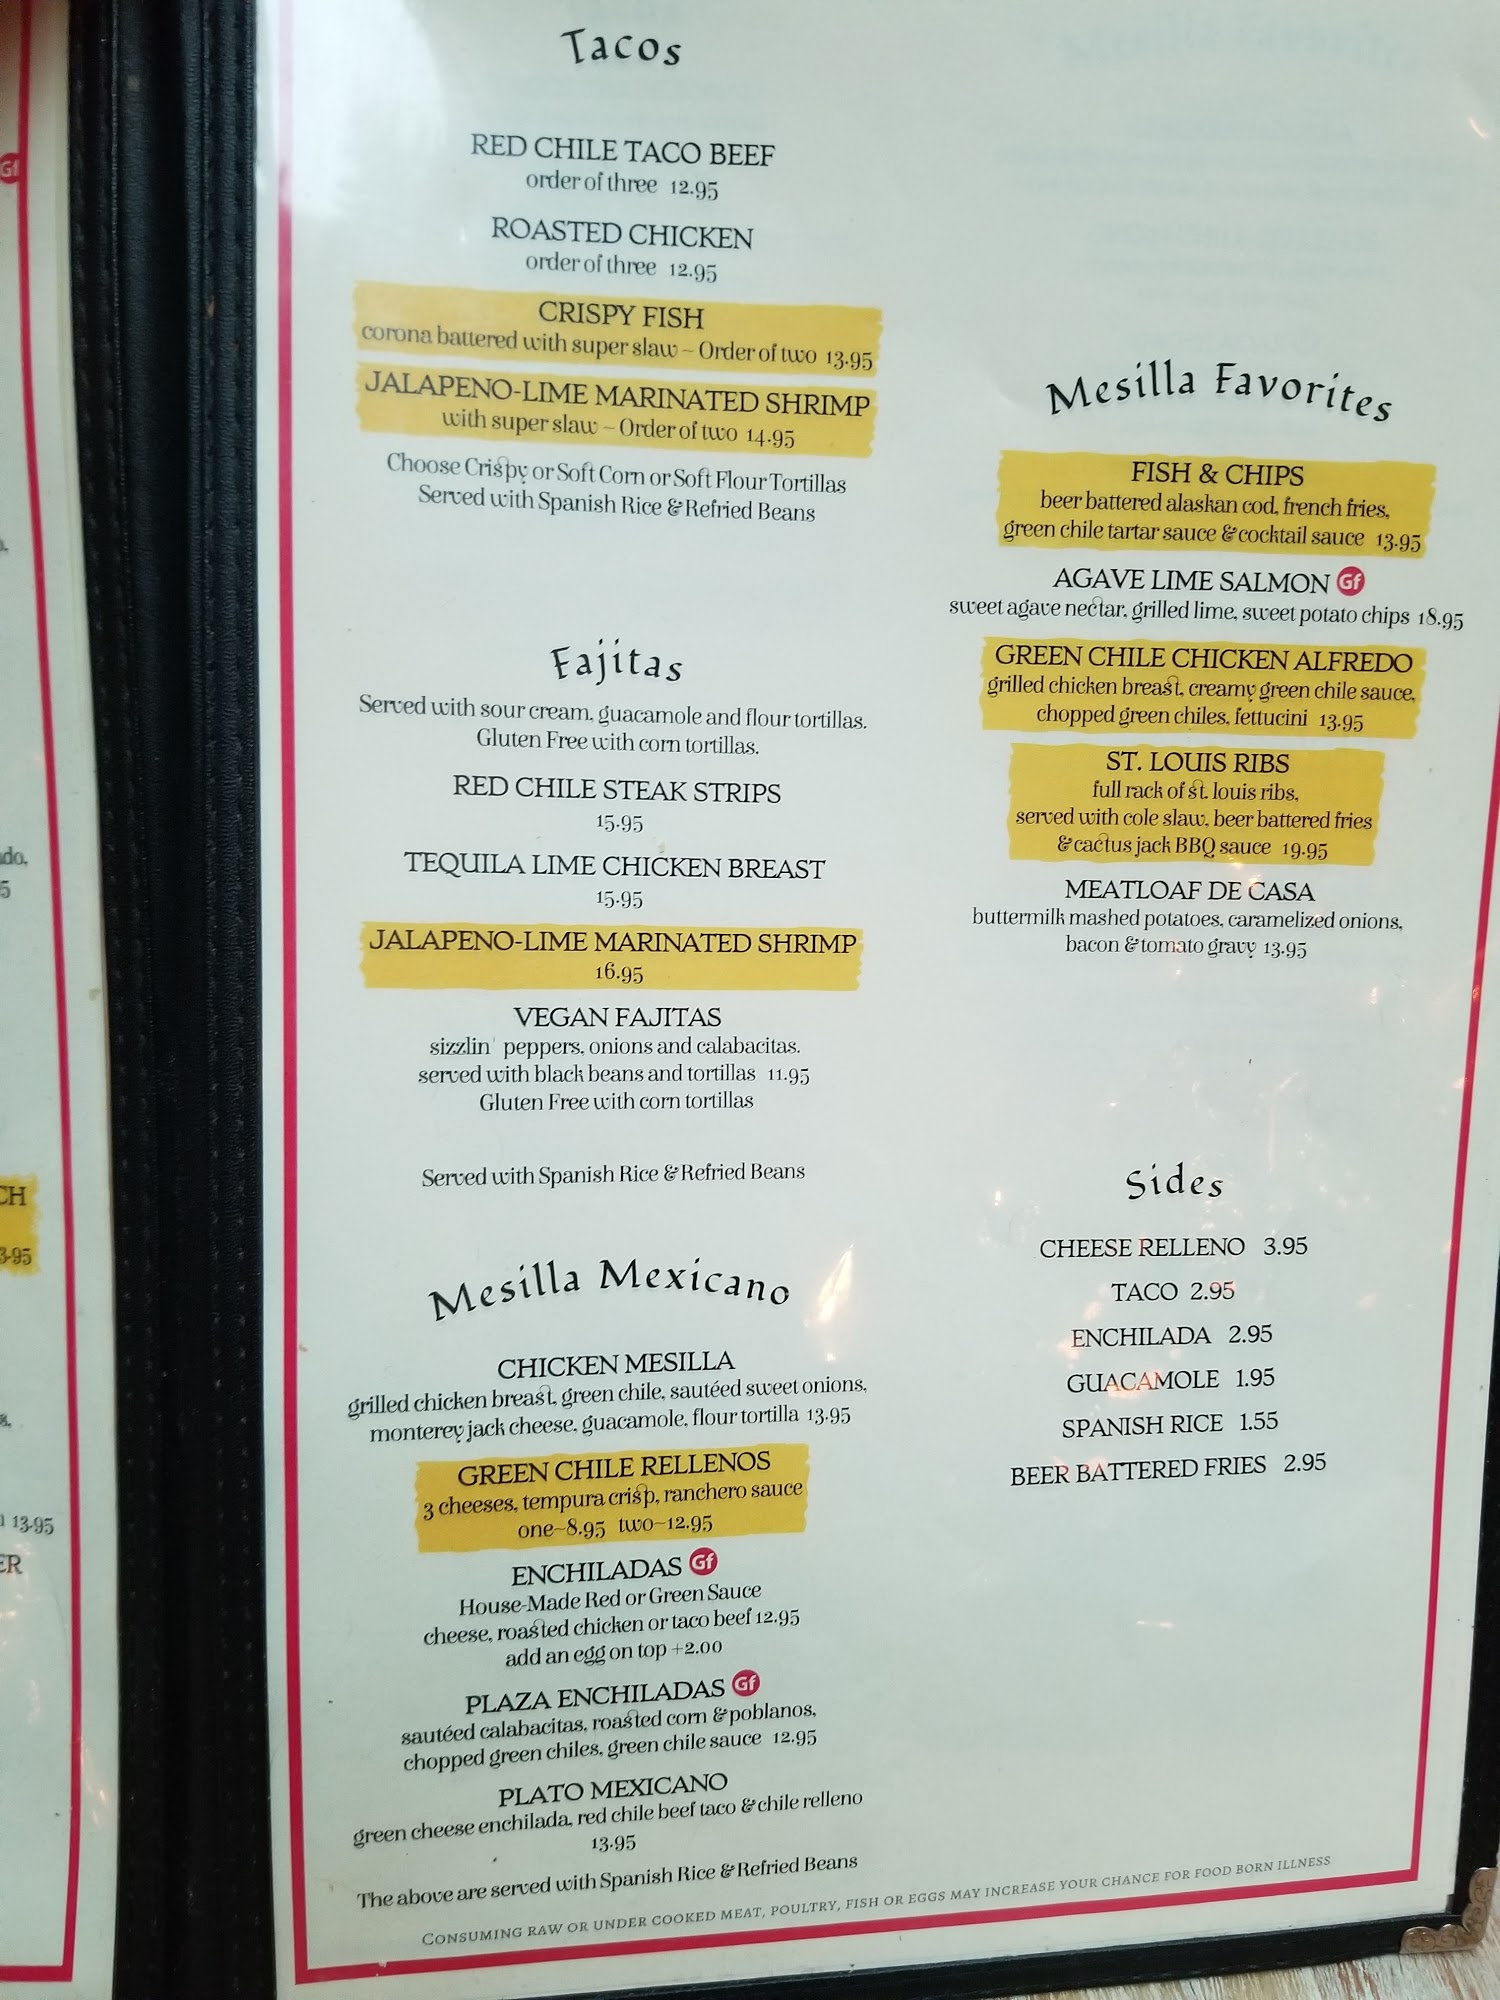 Tacos
RED CHILE TACO BEEF
order of three 12.95
ROASTED CHICKEN
order of three 12.95
CRISPY FISH
corona battered with super slaw – Order of two 13.95
JALAPENO-LIME MARINATED SHRIMP
with super slaw – Order of two 14.95
Choose Crispy or Soft Corn or Soft Flour Tortillas
Served with Spanish Rice & Refried Beans
Fajitas
Served with sour cream, guacamole and flour tortillas.
Gluten Free with corn tortillas.
RED CHILE STEAK STRIPS
15.95
TEQUILA LIME CHICKEN BREAST
15.95
JALAPENO-LIME MARINATED SHRIMP
16.95
VEGAN FAJITAS
sizzlin' peppers, onions and calabacitas.
served with black beans and tortillas 11.95
Gluten Free with corn tortillas
Served with Spanish Rice & Refried Beans
Mesilla Mexicano
CHICKEN MESILLA
grilled chicken breast, green chile, sautéed sweet onions,
monterey jack cheese, guacamole, flour tortilla 13.95
GREEN CHILE RELLENOS
3 cheeses, tempura crisp, ranchero sauce
one~8.95 two~12.95
ENCHILADAS Gf
House-Made Red or Green Sauce
cheese, roasted chicken or taco beef 12.95
add an egg on top +2.00
PLAZA ENCHILADAS Gf
sautéed calabacitas, roasted corn & poblanos,
chopped green chiles, green chile sauce 12.95
PLATO MEXICANO
green cheese enchilada, red chile beef taco & chile relleno
13.95
The above are served with Spanish Rice & Refried Beans
Mesilla Favorites
FISH & CHIPS
beer battered alaskan cod, french fries,
green chile tartar sauce & cocktail sauce 13.95
AGAVE LIME SALMON Gf
sweet agave nectar, grilled lime, sweet potato chips 18.95
GREEN CHILE CHICKEN ALFREDO
grilled chicken breast, creamy green chile sauce,
chopped green chiles, fettucini 13.95
ST. LOUIS RIBS
full rack of st. louis ribs,
served with cole slaw, beer battered fries
& cactus jack BBQ sauce 19.95
MEATLOAF DE CASA
buttermilk mashed potatoes, caramelized onions,
bacon & tomato gravy 13.95
Sides
CHEESE RELLENO 3.95
TACO 2.95
ENCHILADA 2.95
GUACAMOLE 1.95
SPANISH RICE 1.55
BEER BATTERED FRIES 2.95
CONSUMING RAW OR UNDER COOKED MEAT, POULTRY, FISH OR EGGS MAY INCREASE YOUR CHANCE FOR FOOD BORN ILLNESS
Gf
13.95